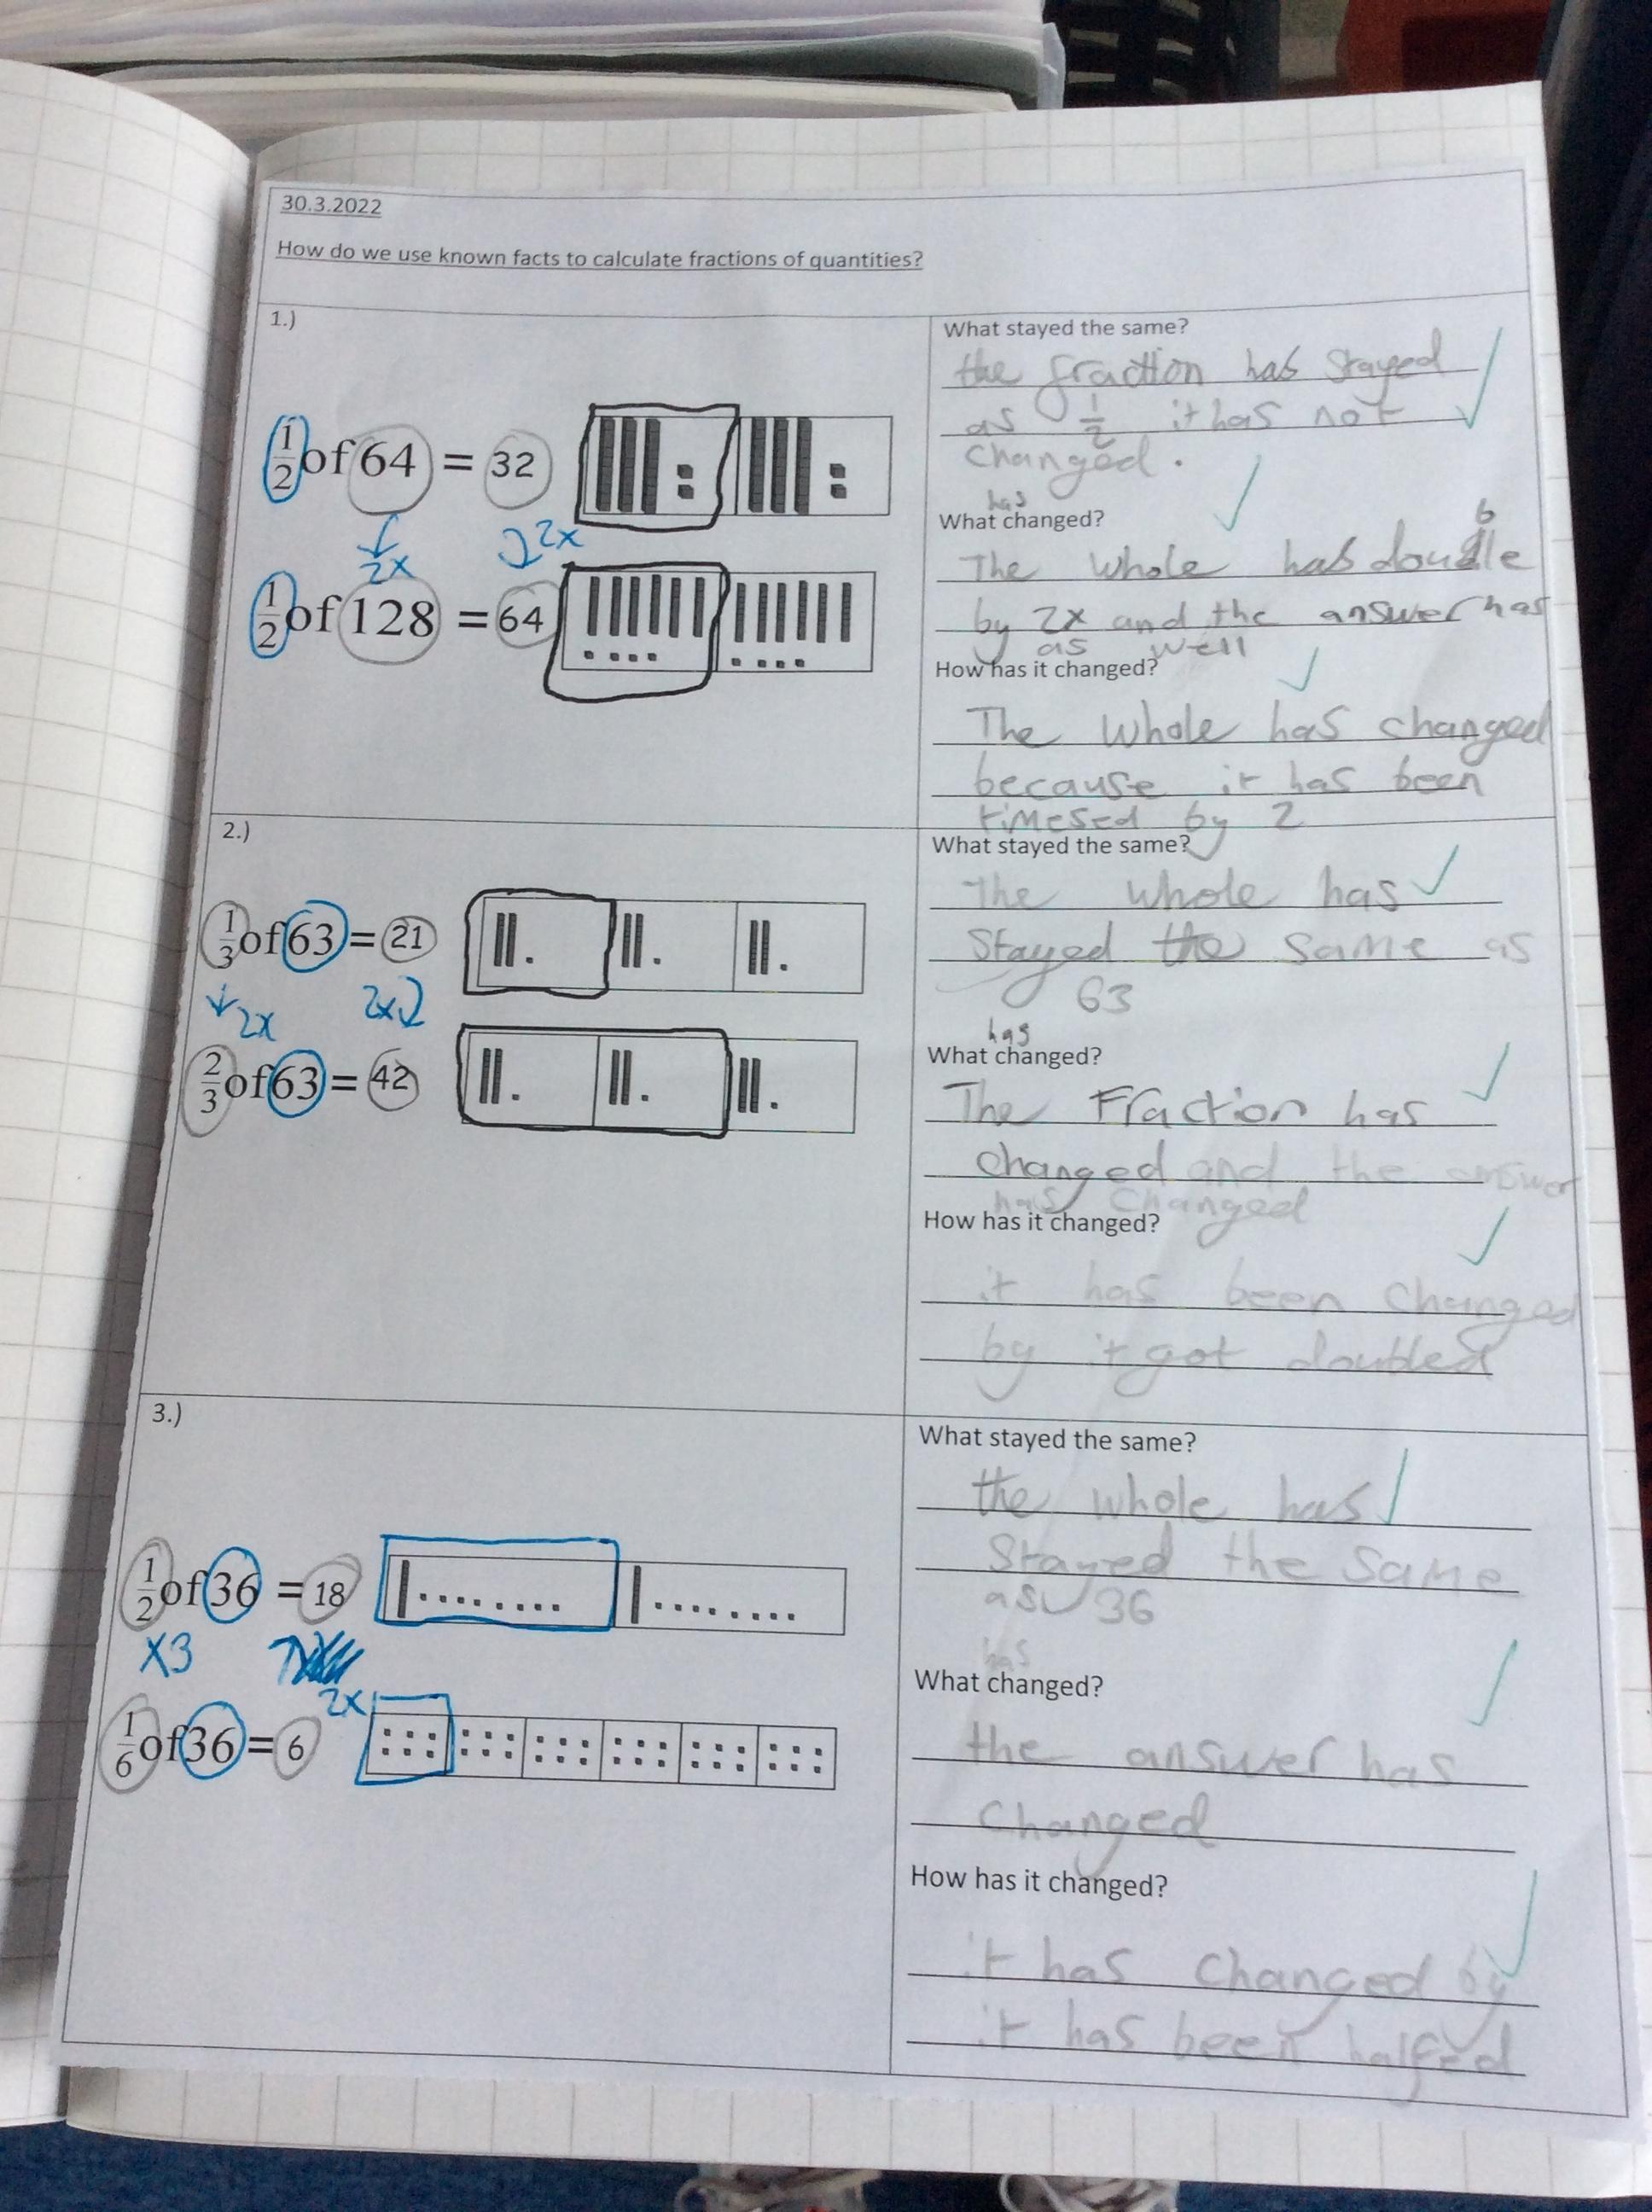 30.3.2022
How do we use known facts to calculate fractions of quantities?
1.)
1/2 of 64 = 32
2x 2x
1/2 of 128 = 64
What stayed the same?
the fraction has stayed
as 1/2 it has not
changed.
has
What changed?
b
The whole has double
by 2x and the answer has
as well
How has it changed?
The whole has changed
because it has been
timesed by 2
2.)
1/3 of 63 = 21
2x 2x
2/3 of 63 = 42
What stayed the same?
The whole has
Stayed the same as
63
has
What changed?
The Fraction has
changed and the answer
has changed
How has it changed?
it has been changed
by it got doubled
3.)
1/2 of 36 = 18
x3
2x
1/6 of 36 = 6
What stayed the same?
the whole has
Stayed the same
as 36
has
What changed?
the answer has
changed
How has it changed?
it has changed by
it has been halfed